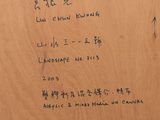 呂振光
LUI CHUN KWONG
山水二一一三號
LANDSCAPE NO. 2113
2003
塑膠彩及混合媒介．帆布
ACRYLIC & MIXED MEDIA ON CANVAS